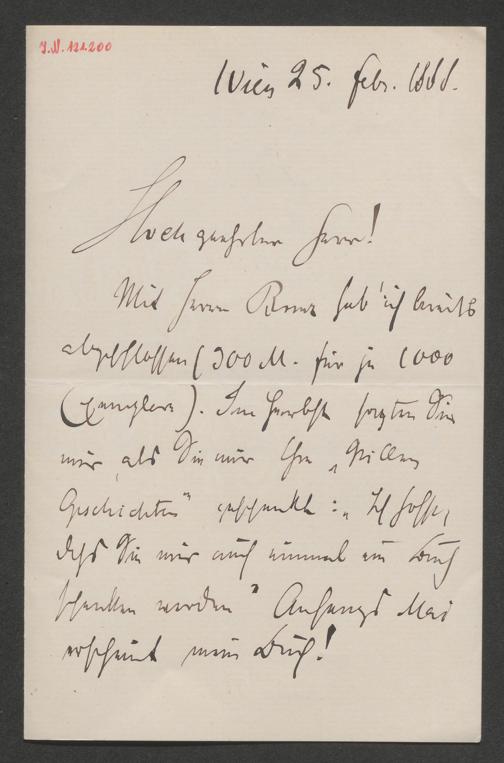 J.N. 121.200
Wien 25. Febr. 1888.
Hochgeehrter Herr!
Mit Herrn Bonz hab' ich bereits
abgeschlossen (300 M. für je 1000
Exemplare). Im Herbst sagten Sie
mir, als Sie mir Ihre „Stillen
Geschichten" geschenkt: „Ich hoffe,
daß Sie mir auch einmal ein Buch
schenken werden" Anfangs Mai
erscheint mein Buch!